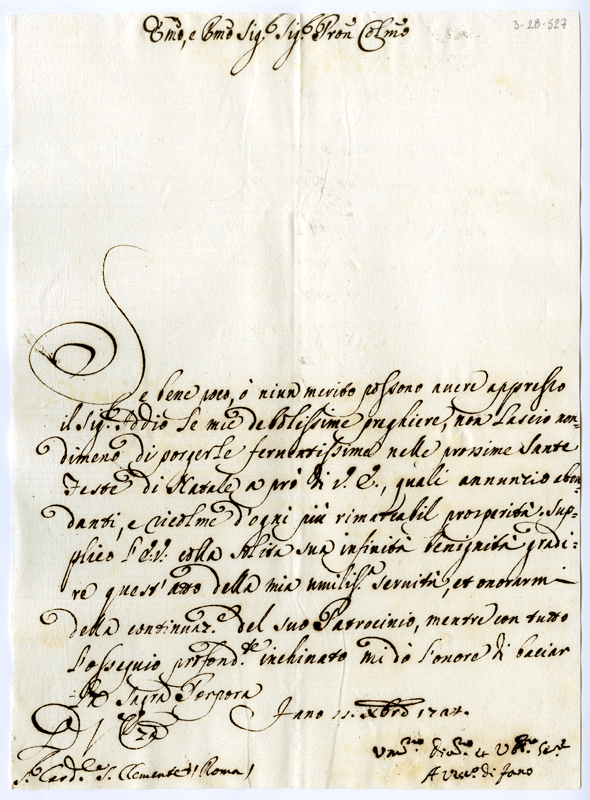 3-28-527
Em̃o, e Rm̃o Sig.r Sig.r Pron̄ Colm̃o
Se bene poco, ò niun merito possono avere appresso
il Sig.r Iddio le mie debolissime preghiere, non lascio non=
dimeno di porgerle ferventissime nelle prossime Sante
Feste di Natale a prò di V.E., quali annunzio abon=
danti, e ricolme d'ogni più rimarcabil prosperità. Sup=
plico l'E.V. colla solita sua infinità benignità gradi=
re quest'atto della mia umiliss.a servitù, et onorarmi
della continuaz.e del suo Patrocinio, mentre con tutto
l'ossequio profond.te inchinato mi dò l'onore di baciar
=le la Sagra Porpora
Di V. Em̃za
Fano 11. Xbre 1727.
S.r Card.le S. Clemente (Roma)
Um̃o Div̄mo et Obl̄mo Ser.e
A Vesc.o di Fano